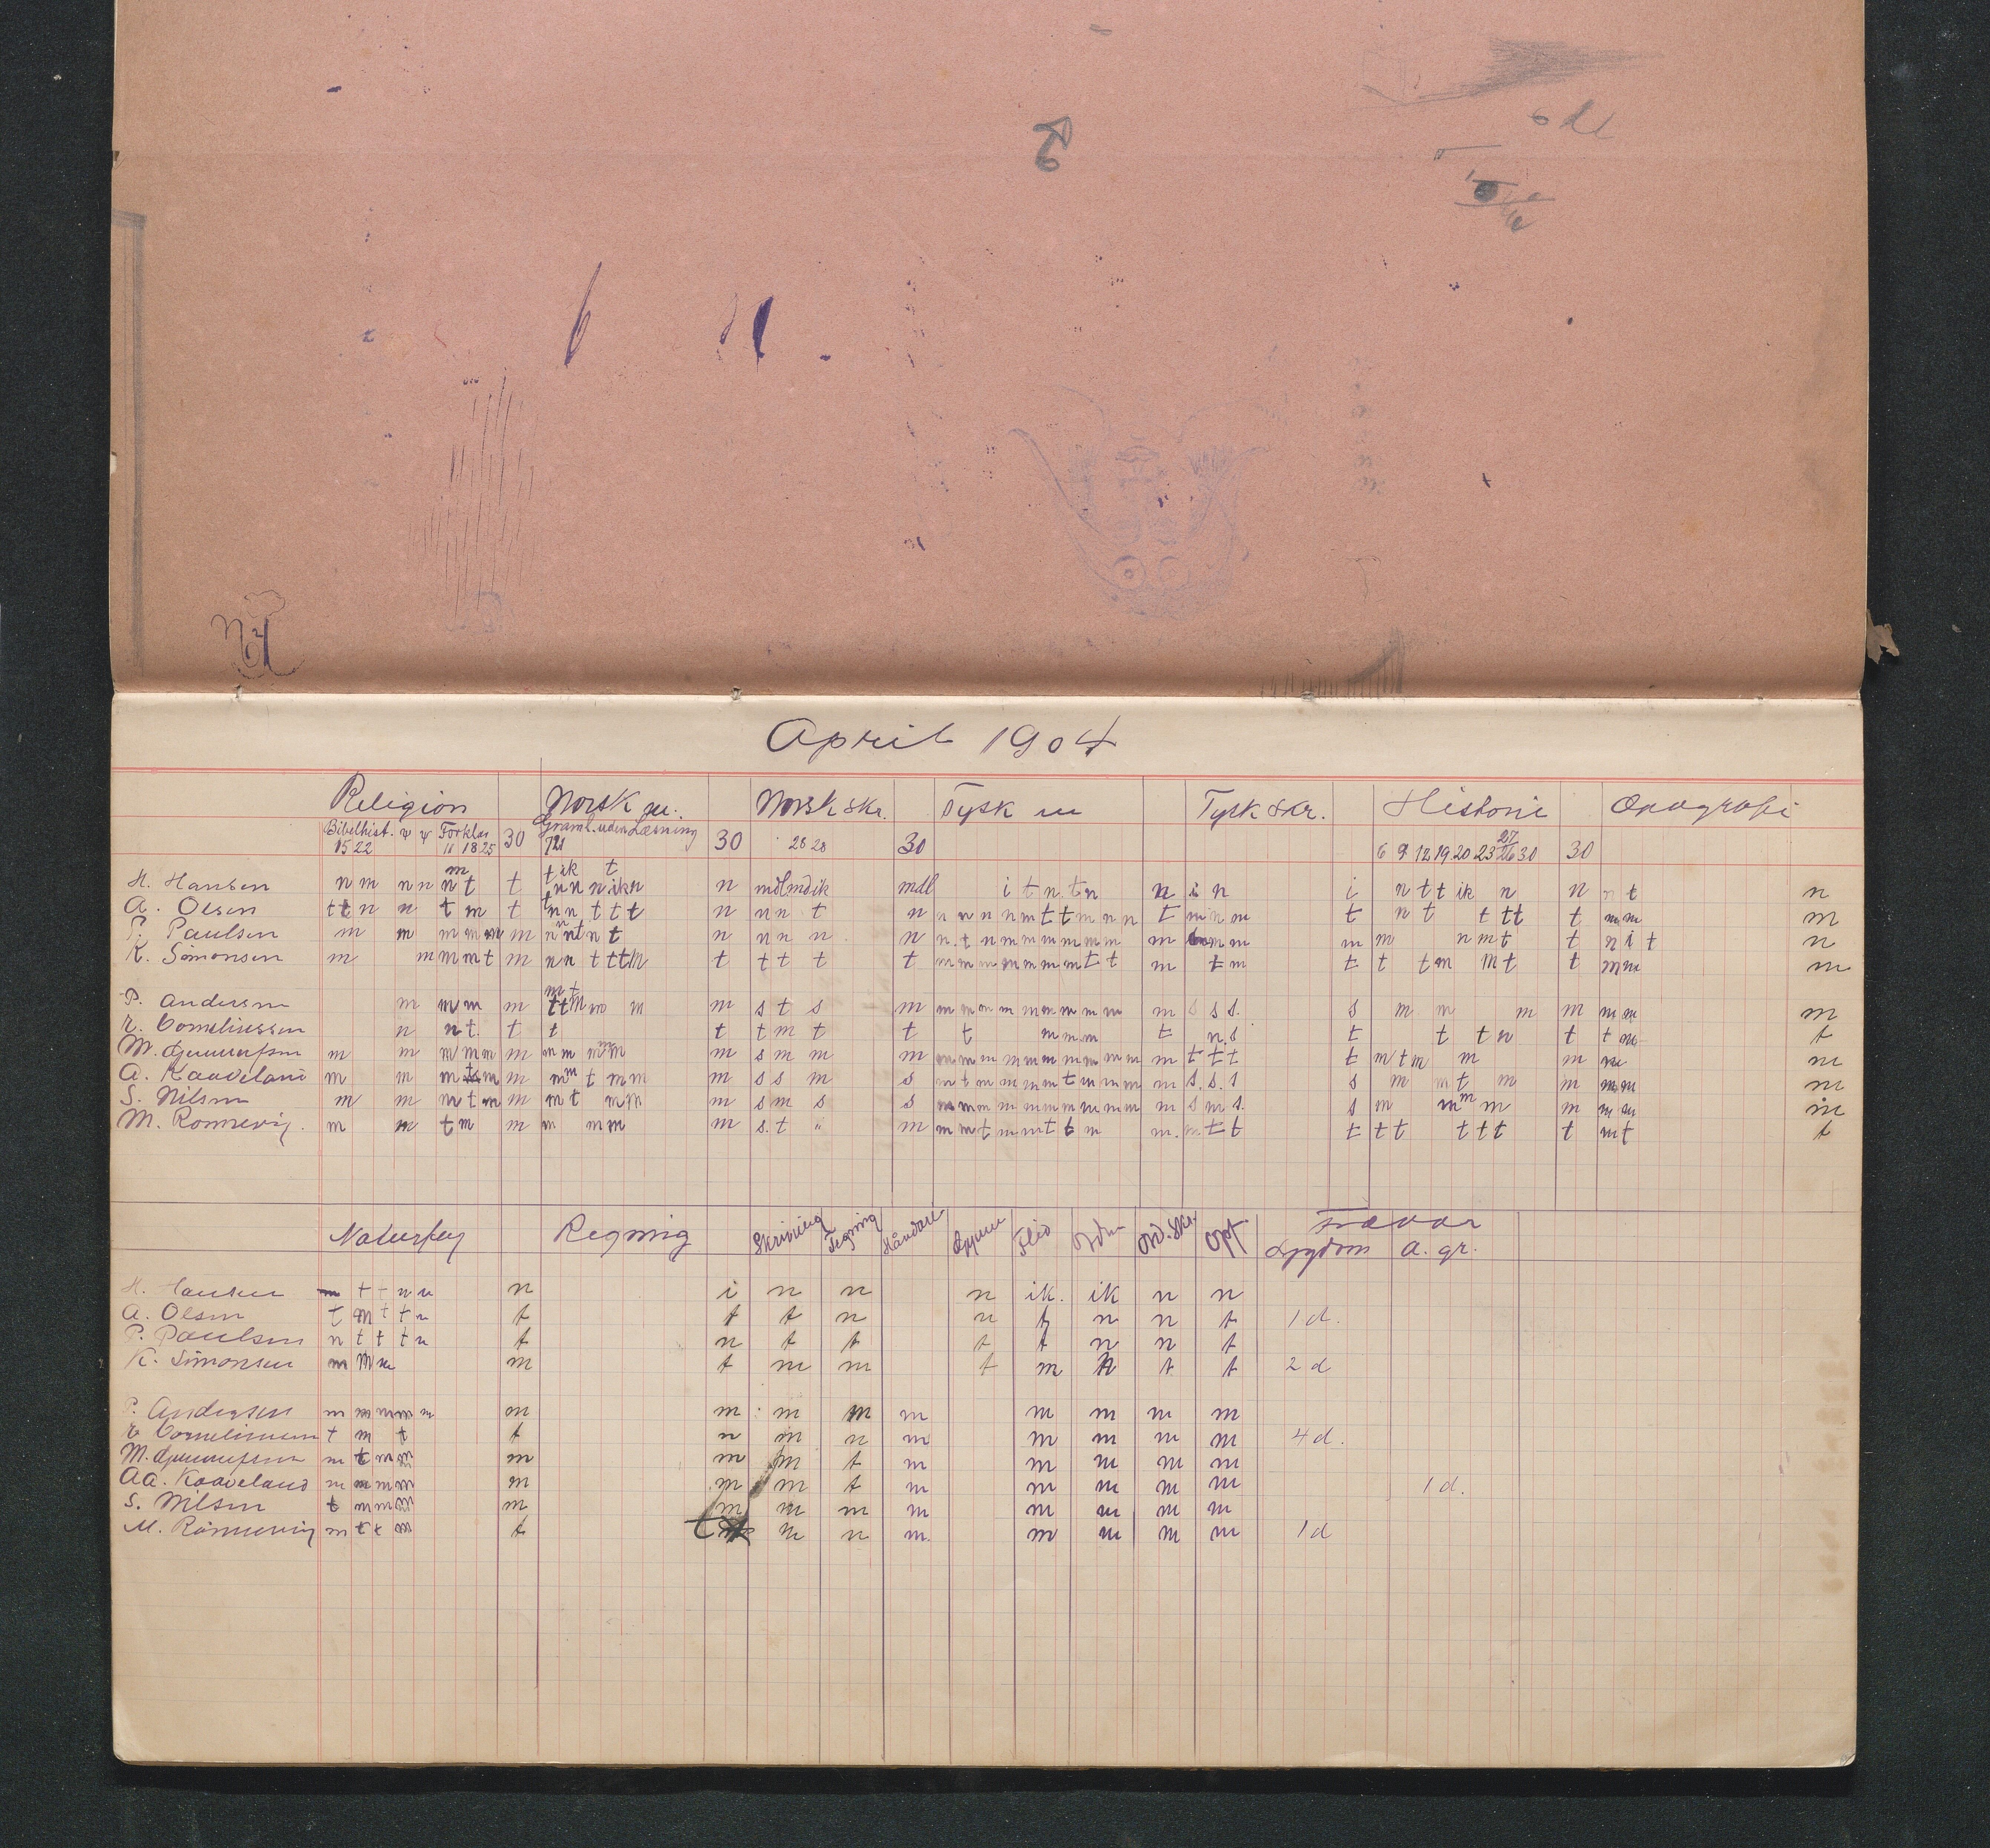 April 1904
Religion Norsk m. Norsk skr. Tysk m Tysk skr. Historie Geografi
Bibelhist. Forklar 30 Graml. uden Læsning 30 28 28 30 6 9 12 19 20 23 27/26 30 30
15 22 11 18 25
H. Hansen n m n n n t t n n n ik n n mdl mdl ik mdl i t n t n n i n i n t t ik n n n t n
A. Olsen t t n n t m t n n t t t n n n t n n n n n m t t m n n t m n m t n t t t t t m m m
P. Paulsen m m m m m m n n t n t n n n n n n t n m m m m m m m m m m m n m t t n i t n
K. Simonsen m m m m t m n n t t t m t t t t t m m m m m m m t t m t m t t t m m t t m m m
P. Andersen m m m m t t m m m s t s m m m m m m m m m m m s s s. s m m m m m m m
E. Corneliussen n n t. t t t t m t t t m m m t n. s t t t n t t m t
M. Gunnufsen m m m m m m m m m m m s m m m m m m m m m m m m m m t t t t m t m m m m m
A. Kaaveland m m m t m m m m t m m m s s m s m t m m m m t m m m m s. s. s s m m t m m m m m
S. Nilsen m m m t m m m t m m m s m s s m m m m m m m m m m m s m s. s m m m m m m m m
M. Rønnevig. m m t m m m m m m s. t " m m m t m m t t m m. m t t t t t t t t t m t t
Naturfag Regning Skrivning Tegning Håndarb Gymn Flid Orden Ord. Skr. Opf. Fravær
Sygdom a. gr.
H. Hansen m t t n n n i n n n ik. ik n n
A. Olsen t m t t n t t t n n t n n t 1 d.
P. Paulsen n t t t n t n t t t t n n t
K. Simonsen m m m m t m m t m t t t 2 d
P. Andersen m m m m m m m m m m m m m m
E Corneliussen t m t t n m n m m m m m 4 d.
M. Gunnufsen m t m m m m m t m m m m m
Aa. Kaaveland m m m m m m m t m m m m m 1 d.
S. Nilsen t m m m m m m m m m m m m
M. Rønnevig m t t m t t m n m. m m m m 1 d